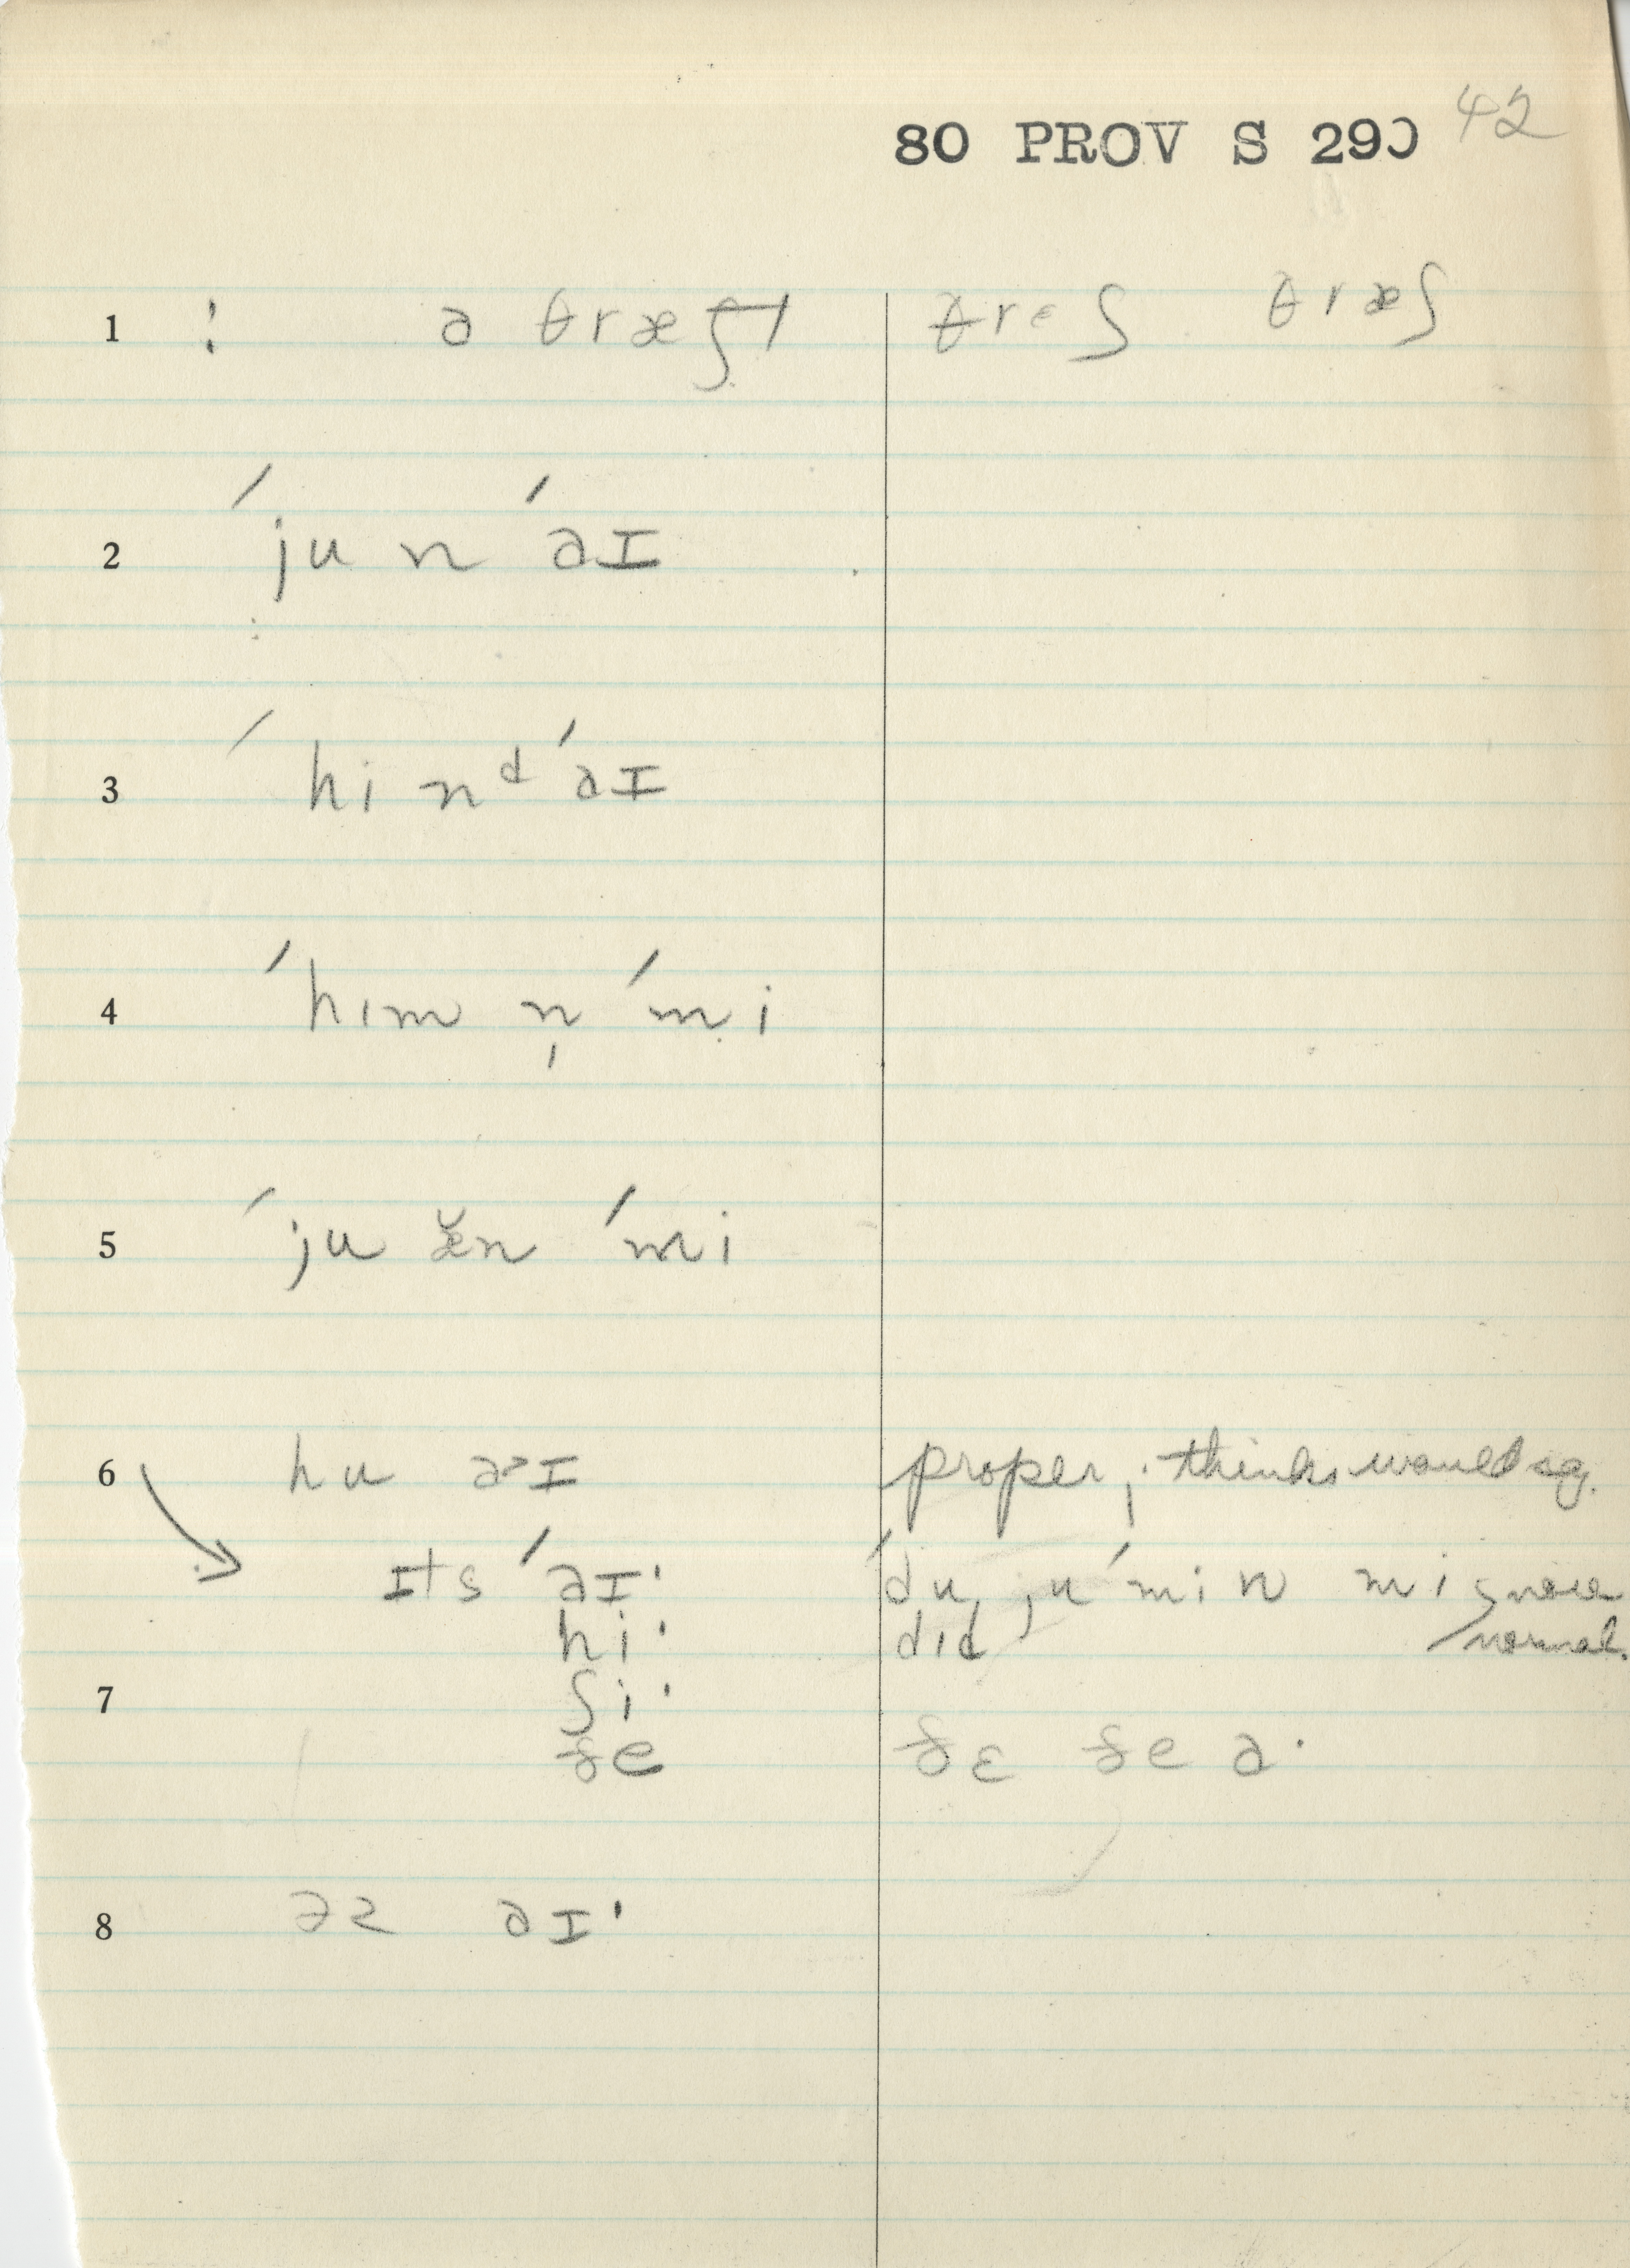 80 PROV S 290 42
1 : ə θræʃt θrɛʃ θræʃ
2 ˈju n ˈəɪ
3 ˈhi nᵈ ˈəɪ
4 ˈhɪm n̩ ˈmi
5 ˈju æ̆n ˈmi
6 hu əɪ proper, thinks would sg.
ɪts ˈəɪ· ˈdu, ju ˈmin mi more
hi· dɪd normal.
7 ʃi·
ðe ðɛ ðe ə·
8 əz əɪ·